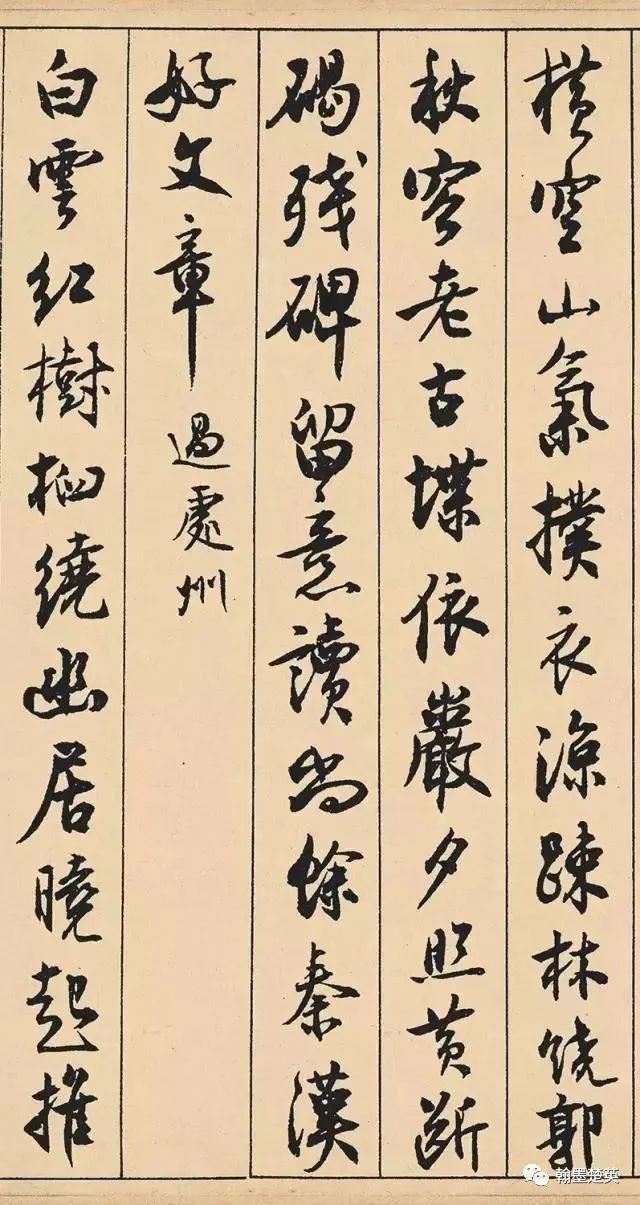 橫空山氣撲衣涼踈林饒郭
秋容老古堞依巖夕照黄斷
碣残碑留意讀尚餘秦漢
好文章 過處州
白雲紅樹相繞幽居曉起推
翰墨楚英